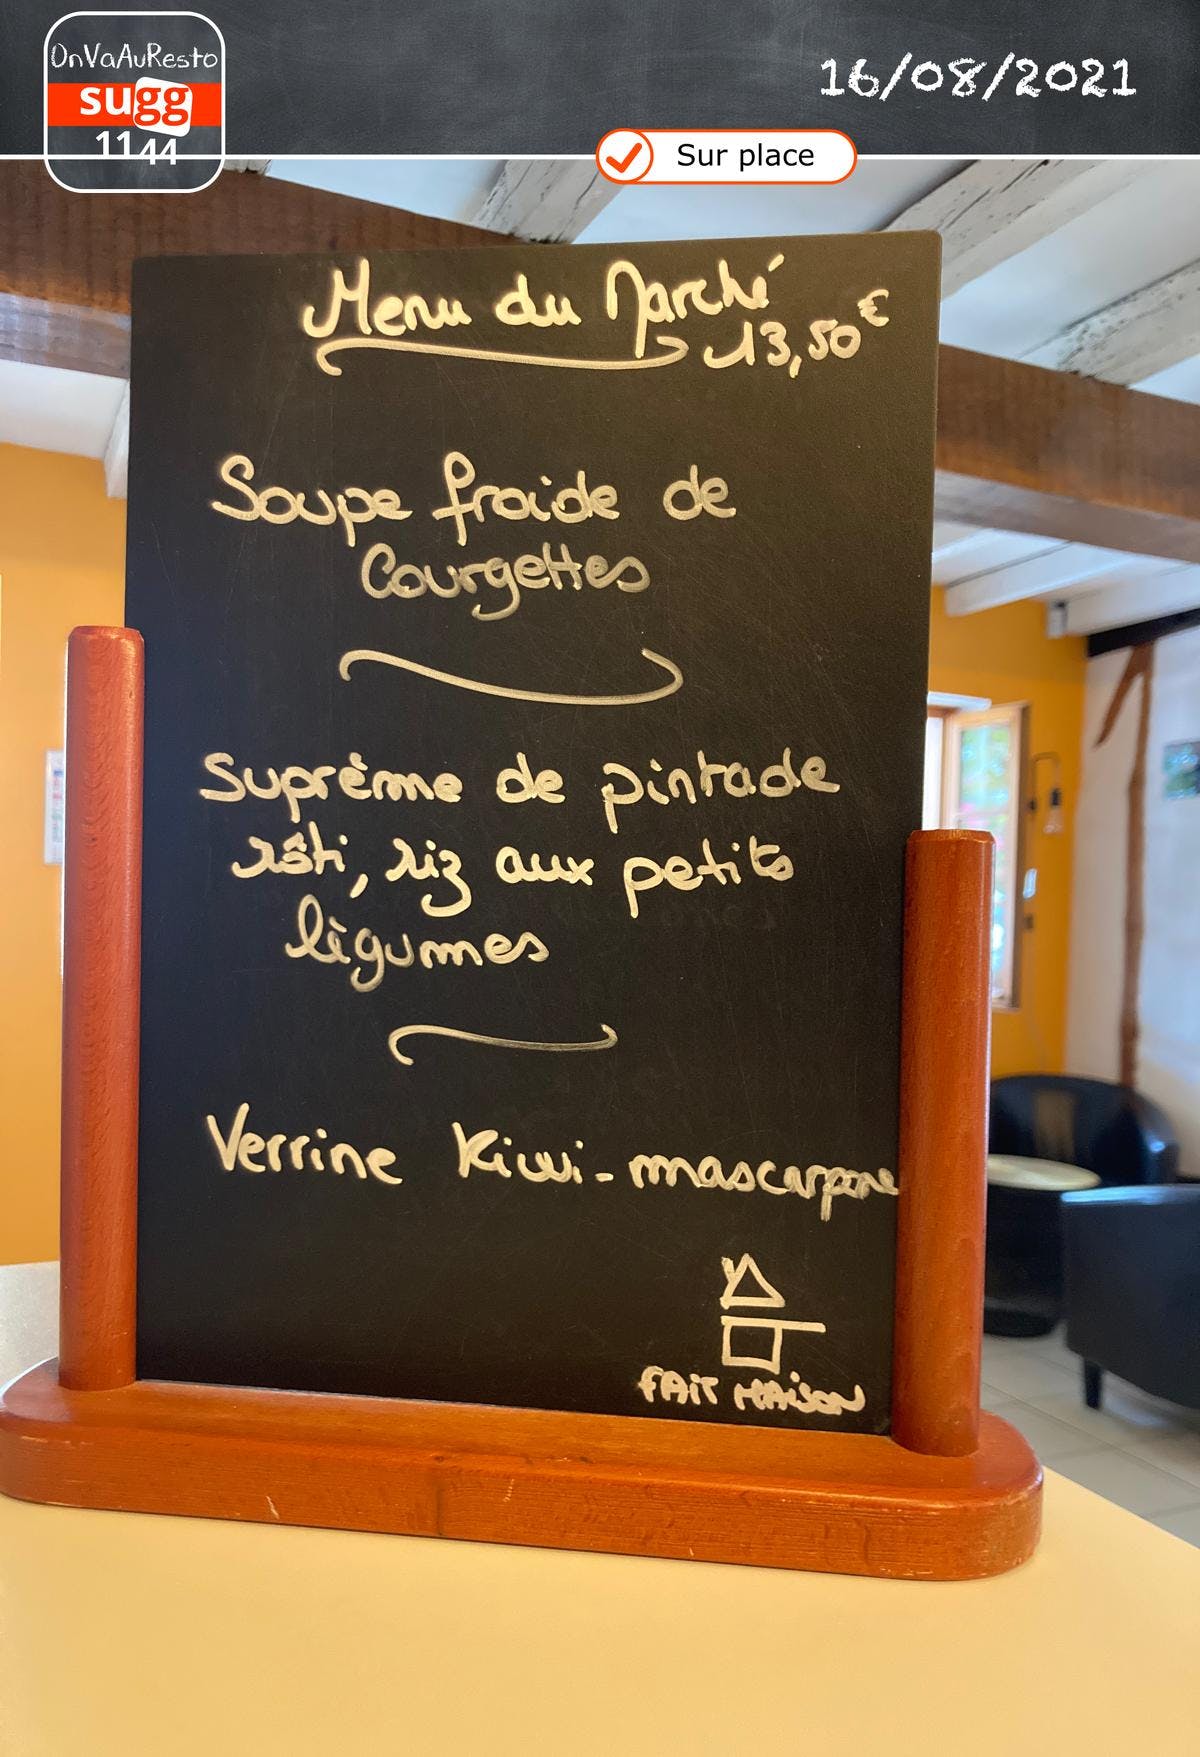 OnVaAuResto
sugg
1144
16/08/2021
Sur place
Menu du Marché
13,50€
Soupe froide de
Courgettes
Suprême de pintade
rôti, riz aux petits
légumes
Verrine Kiwi-mascarpone
FAIT MAISON